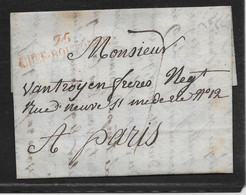 76
Monsieur
Vantroyen freres Negt
Rue neuve St mederic No 12
A paris